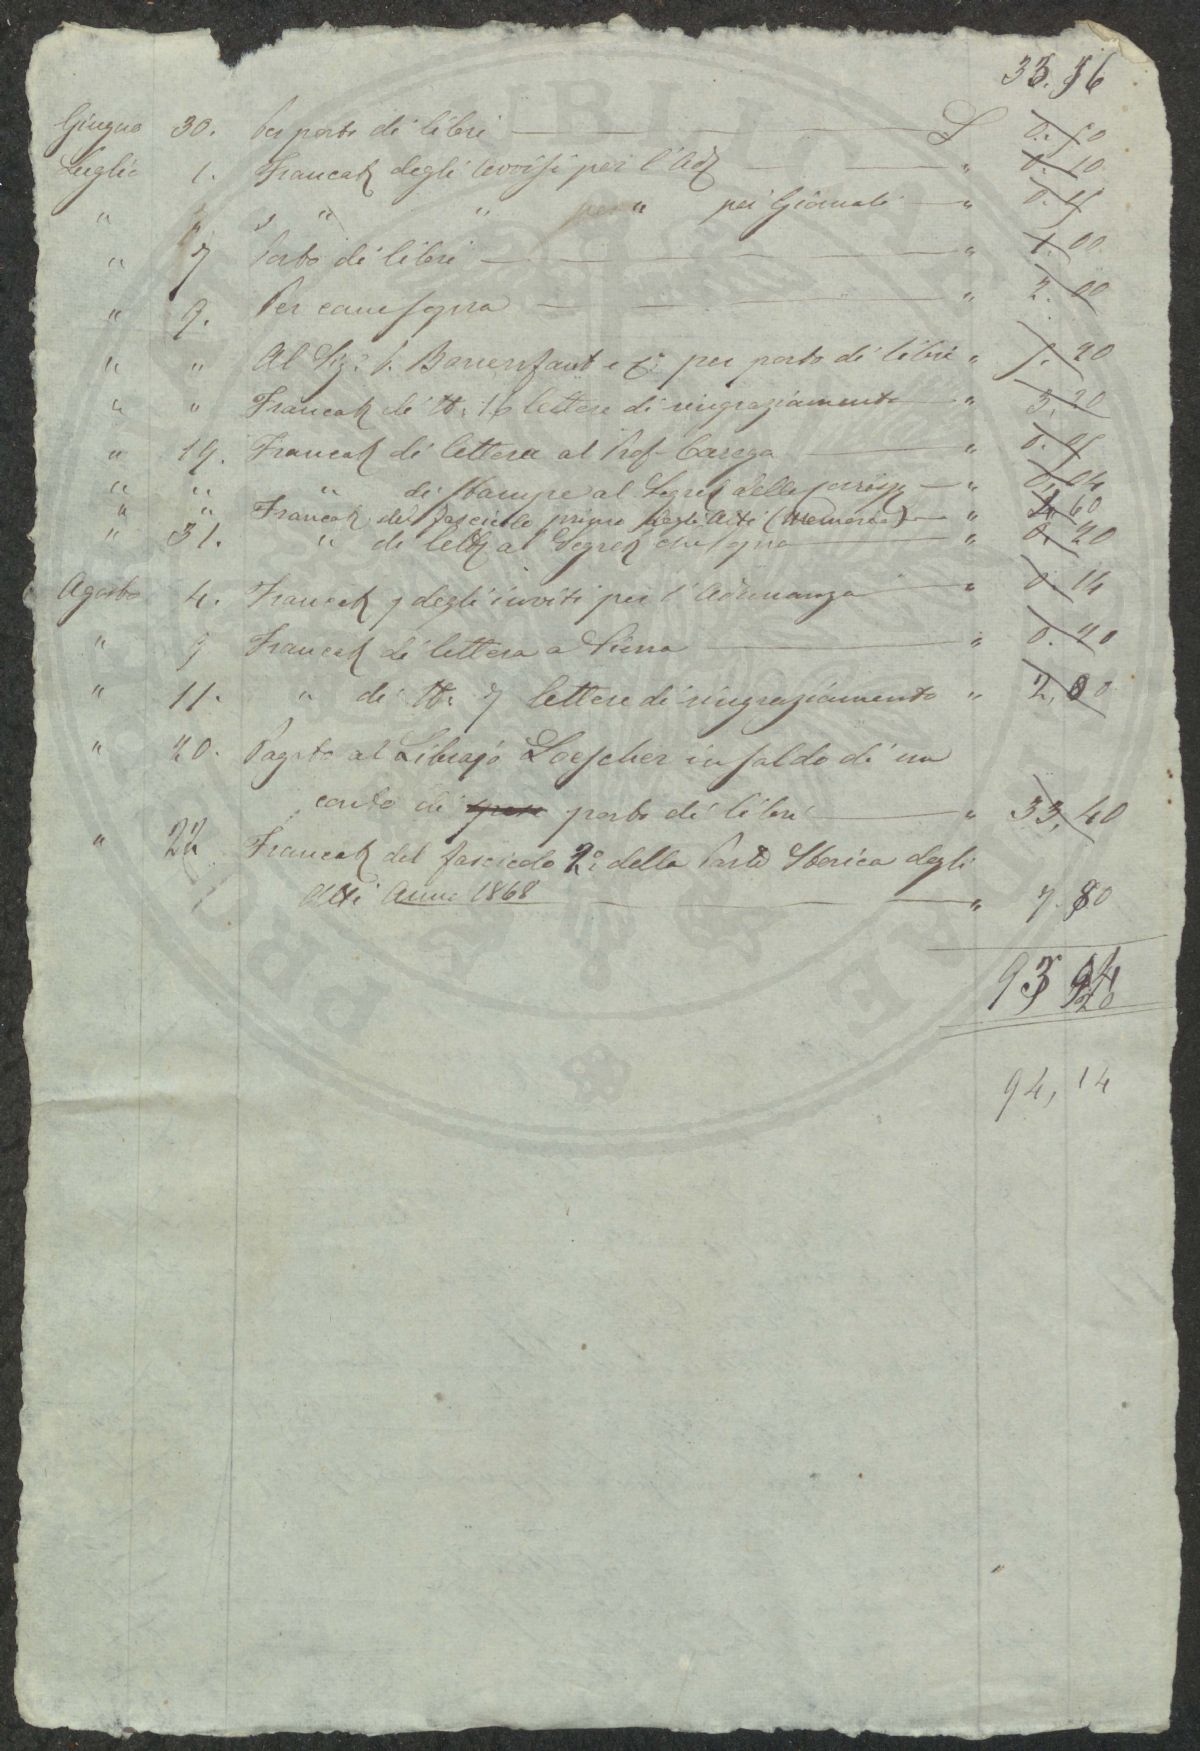 33.
Giugno 30. Per porto di libri L 0.50
Luglio 1. Francat degli avvisi per l'Ad " 0.10
" " " " " pei Giornali "
" 7 Porto di libri " 1.00
" 9. Per " 2.00
" " Al Sig. Bonenfant e per porto di libri " 20
" " Francat di N. 16 lettere di ringraziamento " 3,20
" 19. Francat di lettera al Prof. Carega "
" " " di Stampe al della " 0,04
" " Francat del fascicolo primo degli Atti (Memorie) " 60
" 31. " di al " 0. 20
Agosto 4. Francat degli inviti per l'Adunanza " 0.14
" 9 Francat di lettera a " 0.20
" 11. " di N. 7 lettere di ringraziamento " 2,00
" 20. Pagato al Librajo Loescher in saldo di un
conto di porto di libri " 33,40
" 22 Francat del fascicolo 2° della Parte Storica degli
Atti Anno 1868 " 7.80
93
94,14